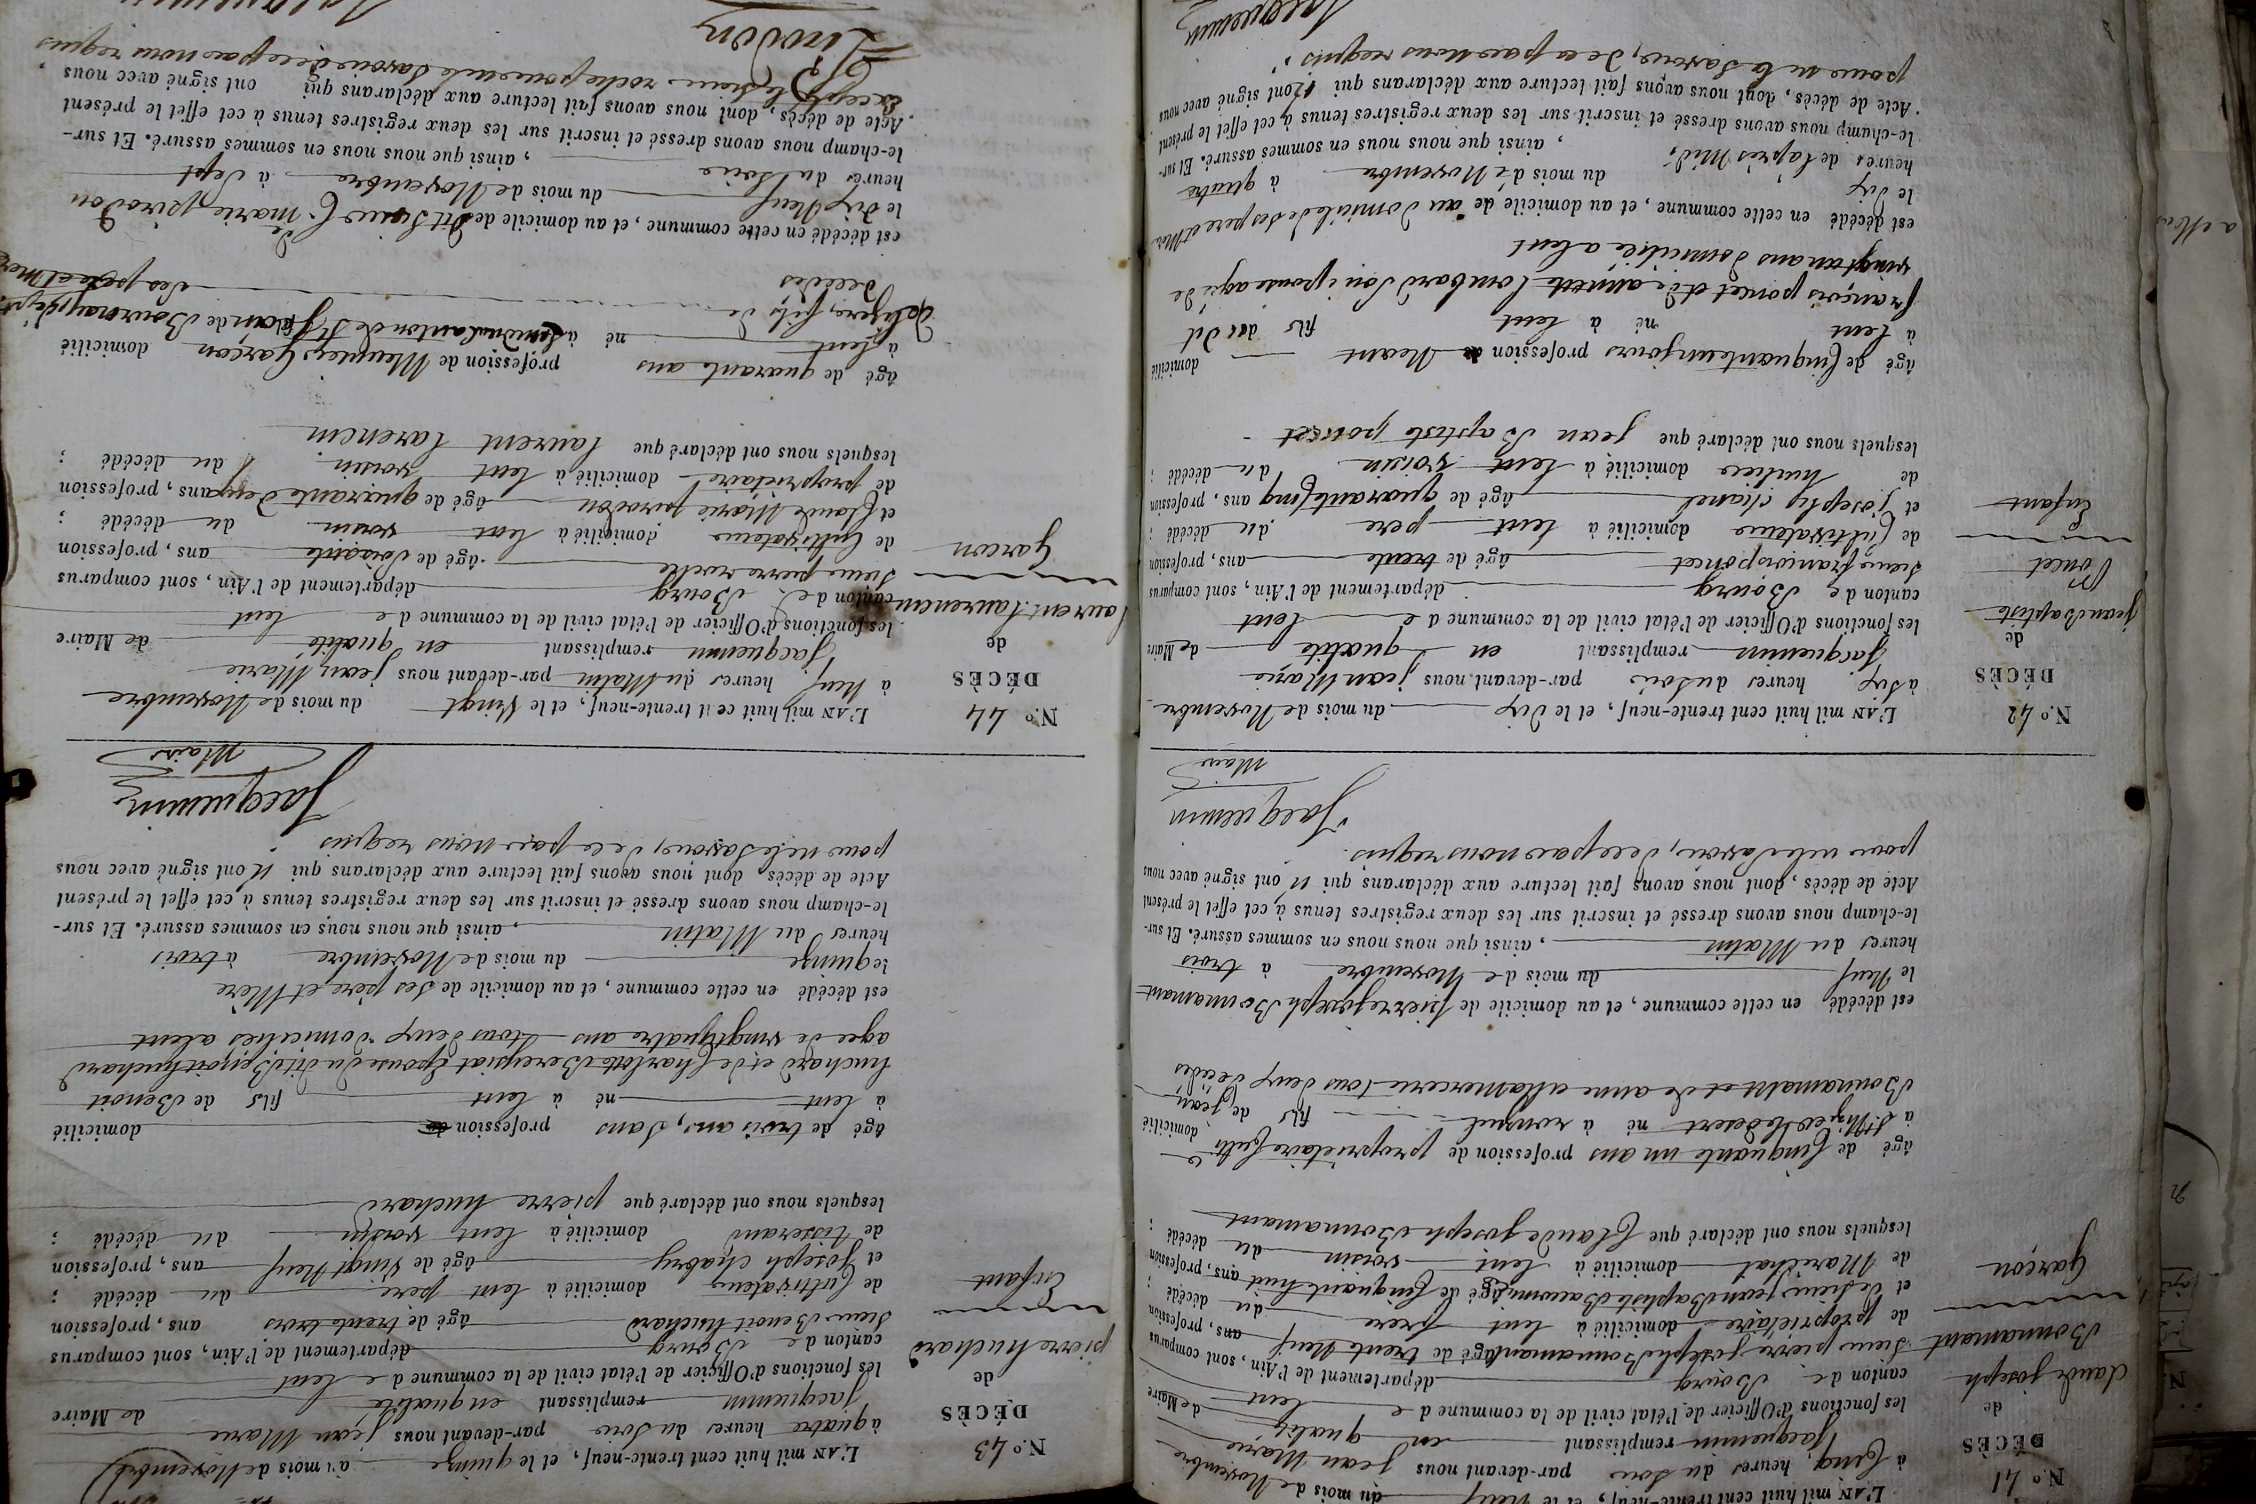 N.º 41
DÉCÈS
de
claude joseph
Bonnamant
Garçon
L'AN mil huit cent trente-neuf, et le neuf du mois de Novembre
à Cinq heures du soir par-devant nous jean Marie
Jacquemin remplissant en qualité de Maire
les fonctions d'Officier de l'état civil de la commune de lent
canton de Bourg département de l'Ain, sont comparus
Sieur pierre joseph Bonnamant âgé de trente Neuf ans, profession
de propriétaire domicilié à lent frere du décédé ;
et de sieur jean Baptiste âgé de Cinquante huit ans, profession
de Maréchal domicilié à lent voisin du décédé ;
lesquels nous ont déclaré que Claude joseph Bonnamant
âgé de Cinquante un ans profession de propriétaire Cultr domicilié
à né à fils de jean
Bonnamant et de anne tous deux décédés
est décédé en cette commune, et au domicile de pierre joseph Bonnamant
le Neuf du mois de Novembre à trois
heures du Matin, ainsi que nous nous en sommes assuré. Et sur-
le-champ nous avons dressé et inscrit sur les deux registres tenus à cet effet le présent
Acte de décès, dont nous avons fait lecture aux déclarans qui n'ont signé avec nous
pour ne le Savoir, de ce pas nous requis.
Jacquemin
Maire
N.º 42
DÉCÈS
de
jean Baptiste
Poncet
Enfant
L'AN mil huit cent trente-neuf, et le dix du mois de Novembre
à six heures du soir par-devant nous jean Marie
Jacquemin remplissant en qualité de Maire
les fonctions d'Officier de l'état civil de la commune de lent
canton de Bourg département de l'Ain, sont comparus
Sieur francois poncet âgé de trente ans, profession
de Cultivateur domicilié à lent pere du décédé ;
et joseph chanel âgé de quarante Cinq ans, profession
de domicilié à lent voisin du décédé ;
lesquels nous ont déclaré que jean Baptiste poncet
âgé de Cinquante un jours profession Neant domicilié
à lent né à lent fils des dit
françois poncet et de annette lombard son épouse agée de
vingt ans domicilié a lent
est décédé en cette commune, et au domicile de au domicile de ses pere et Mere
le dix du mois de Novembre à quatre
heures de l'après Midi, ainsi que nous nous en sommes assuré. Et sur-
le-champ nous avons dressé et inscrit sur les deux registres tenus à cet effet le présent
Acte de décès, dont nous avons fait lecture aux déclarans qui n'ont signé avec nous
pour ne la Savoir, de ce pas nous requis.
Jacquemin
N.º 43
DÉCÈS
de
pierre huchard
Enfant
L'AN mil huit cent trente-neuf, et le quinze du mois de Novembre
à quatre heures du soir par-devant nous jean Marie
jacquemin remplissant en qualité de Maire
les fonctions d'Officier de l'état civil de la commune de lent
canton de Bourg département de l'Ain, sont comparus
Sieur Benoit huchard âgé de trente trois ans, profession
de Cultivateur domicilié à lent pere du décédé ;
et Joseph Chabry âgé de Vingt Neuf ans, profession
de tisserand domicilié à lent voisin du décédé ;
lesquels nous ont déclaré que pierre huchard
âgé de trois ans, sans profession domicilié
à lent né à lent fils de Benoit
huchard et de Charlotte Bereyziat Epouse du dit Benoit huchard
agee de vingt quatre ans tous deux domiciliés a lent
est décédé en cette commune, et au domicile de ses père et Mère
le quinze du mois de Novembre à trois
heures du Matin, ainsi que nous nous en sommes assuré. Et sur-
le-champ nous avons dressé et inscrit sur les deux registres tenus à cet effet le présent
Acte de décès dont nous avons fait lecture aux déclarans qui n'ont signé avec nous
pour ne le Savoir, de ce pas nous requis
Jacquemin
Maire
N.º 44
DÉCÈS
de
laurent laurencin
Garçon
L'AN mil huit cent trente-neuf, et le Vingt du mois de Novembre
à Neuf heures du Matin par-devant nous jean Marie
Jacquemin remplissant en qualité de Maire
les fonctions d'Officier de l'état civil de la commune de lent
canton de Bourg département de l'Ain, sont comparus
Sieur pierre rolle âgé de Soixante ans, profession
de Cultivateur domicilié à lent voisin du décédé ;
et Claude Marie pirodon âgé de quarante deux ans, profession
de propriétaire domicilié à lent voisin du décédé ;
lesquels nous ont déclaré que laurent larencin
âgé de quarante ans profession de Meunier Garçon domicilié
à lent né à canton de St jean de Bournay dépt.
De lizere, fils de ses pere et mere
décédés
est décédé en cette commune, et au domicile de dit Sieur C. Marie pirodon
le dix Neuf du mois de Novembre à Sept
heures du Soir, ainsi que nous nous en sommes assuré. Et sur-
le-champ nous avons dressé et inscrit sur les deux registres tenus à cet effet le présent
Acte de décès, dont nous avons fait lecture aux déclarans qui ont signé avec nous
Excepté le sieur rolle pour ne le Savoir de ce pas nous requis
Pirodon
Jacquemin